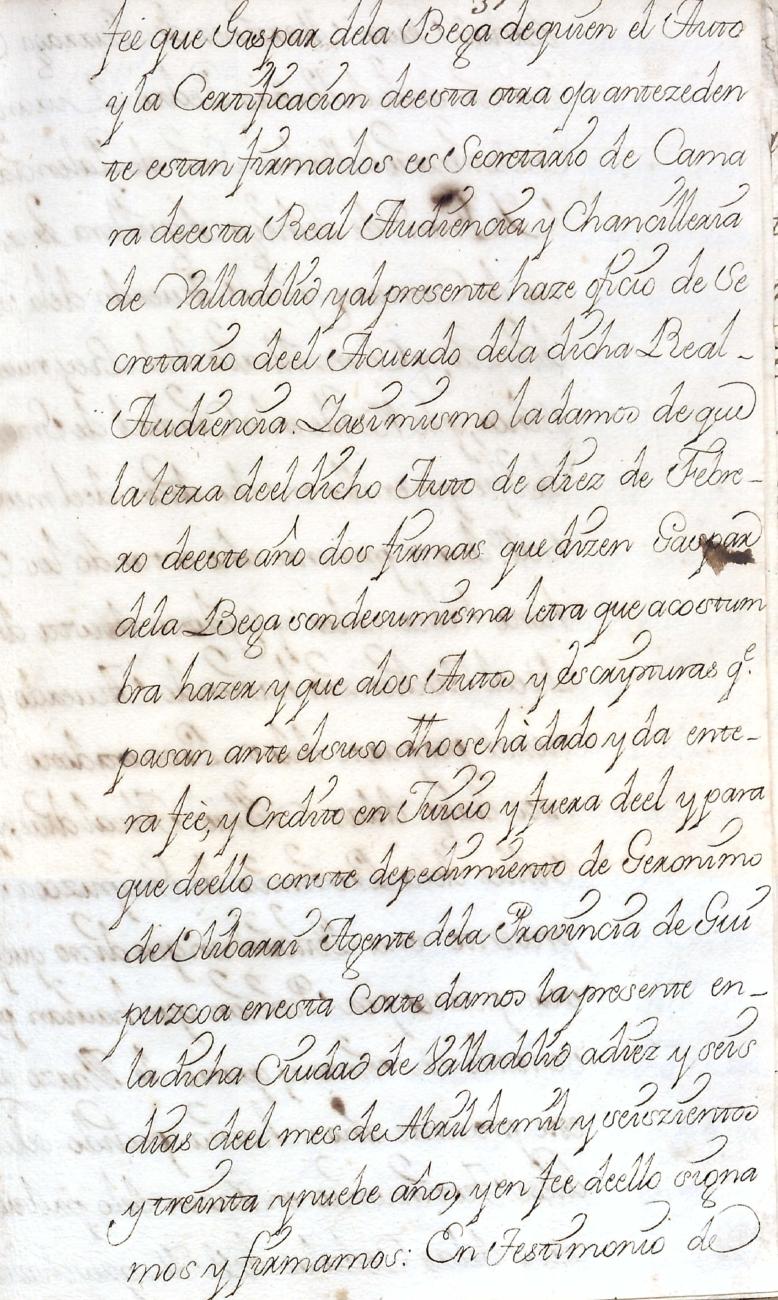 fee que Gaspar dela Bega dequien el Auto
y la Certificacion deesta otra oja antezeden
te estan firmados es Secretario de Cama
ra deesta Real Audiencia y Chancilleria
de Valladolid y al presente haze oficio de Se
cretario deel Acuerdo dela dicha Real-
Audiencia. Yasimismo la damos de que
la letra deel dicho Auto de diez de Febre-
ro deeste año dos firmas que dizen Gaspar
dela Bega sondesumisma letra que acostum
bra hazer y que alos Autos y escrypturas q.e
pasan ante elsuso dho se hà dado y da ente-
ra feè, y Credito en Juicio y fuera deel y para
que deello conste depedimiento de Geronimo
de Ulibarri Agente dela Provincia de Gui
puzcoa enesta Corte damos la presente en-
la dicha Ciudad de Valladolid adiez y seis
dias deel mes de Abril demil y seiszientos
y treinta ynuebe años, yen fee deello signa
mos y firmamos: En Testimonio de